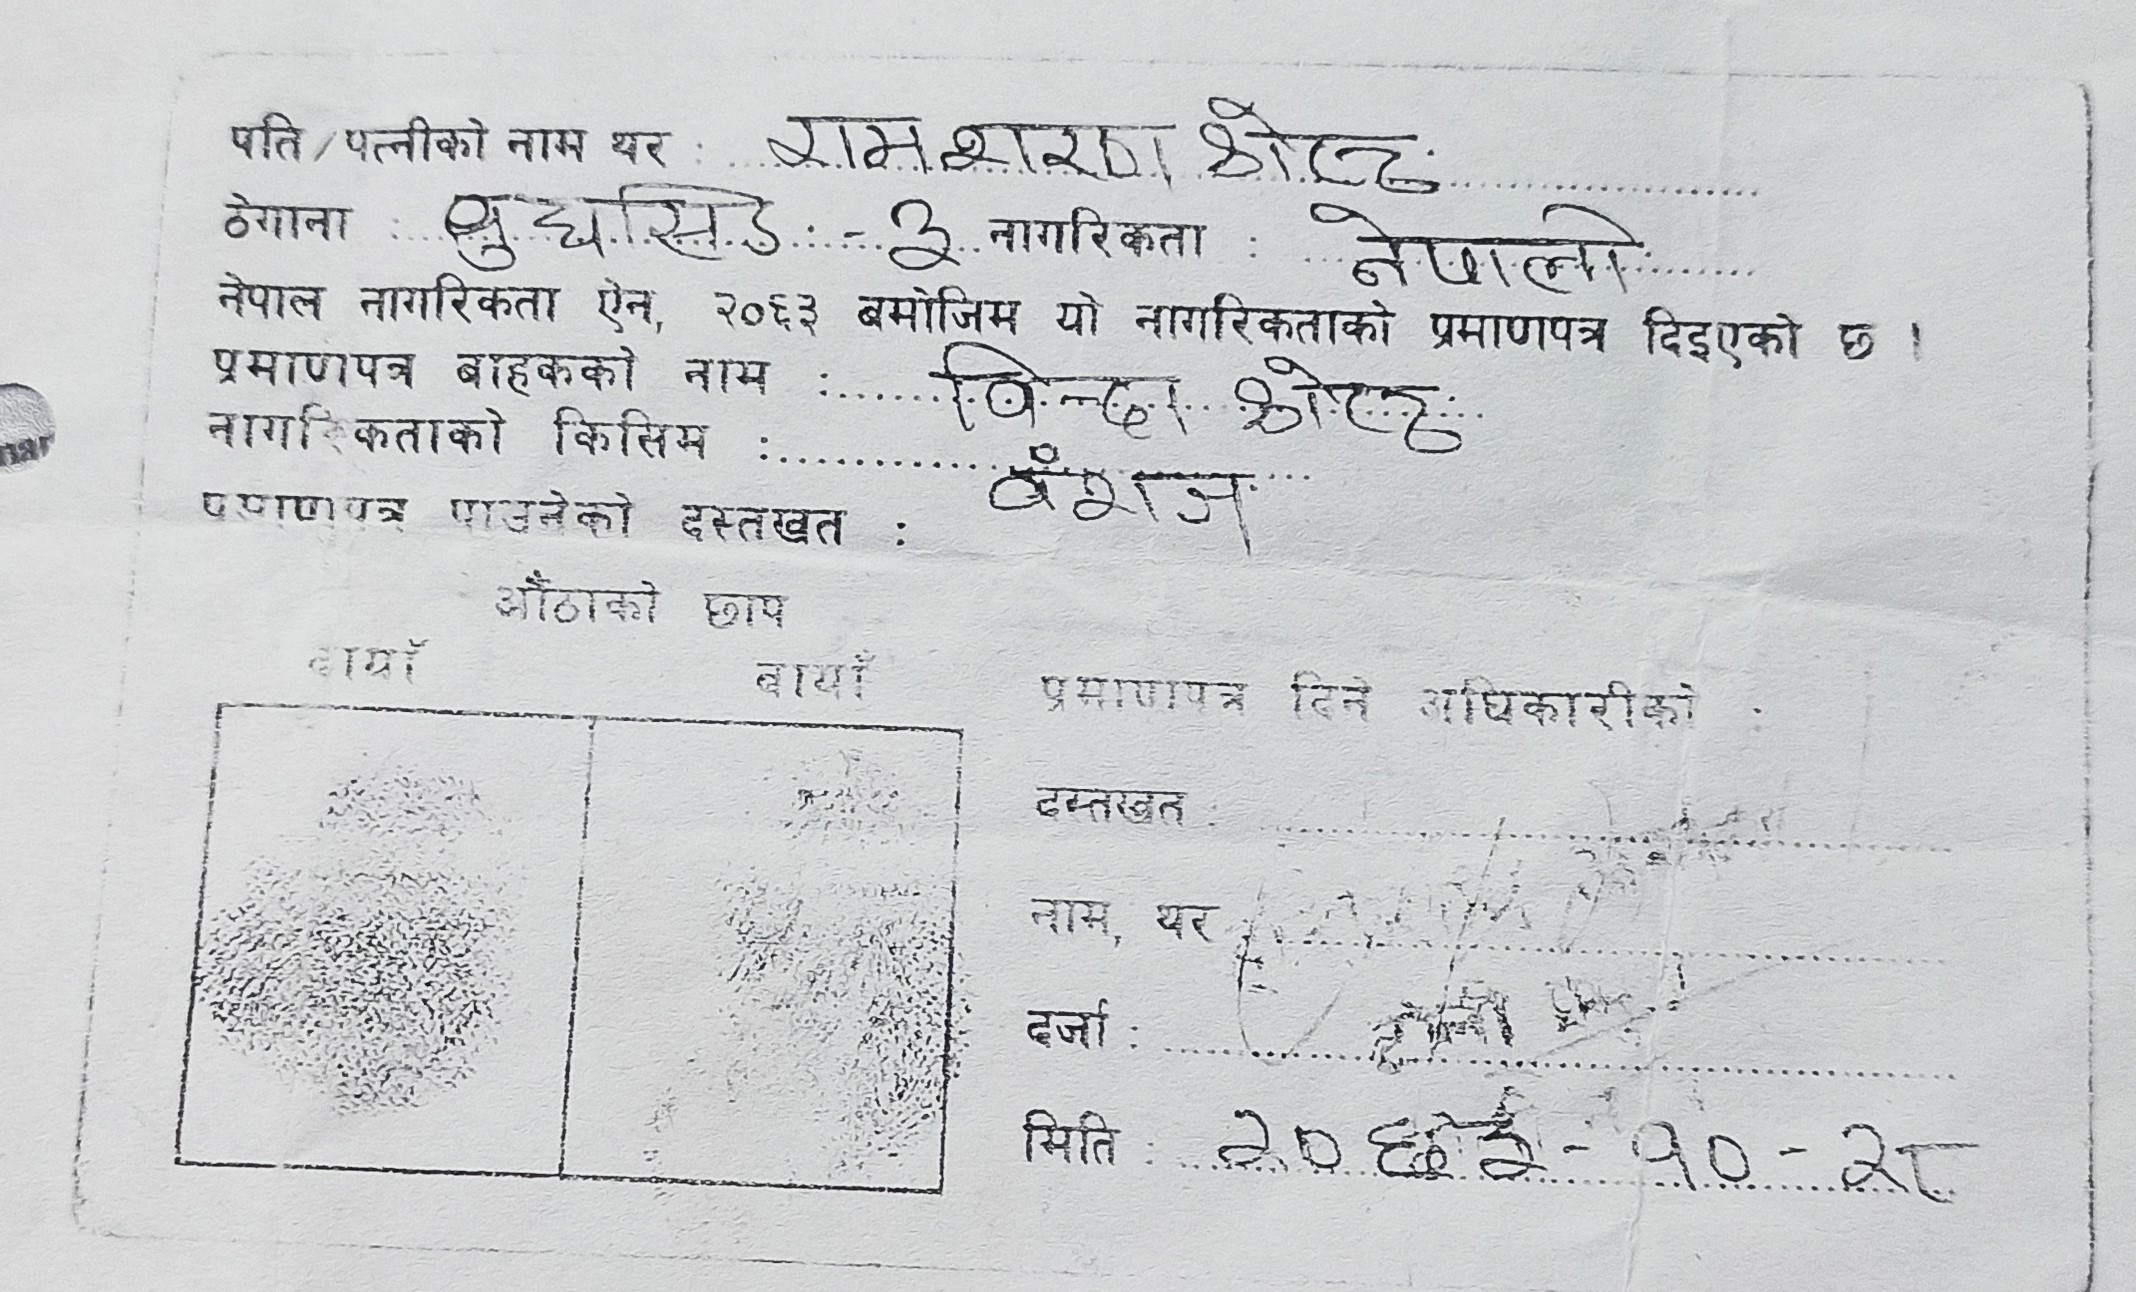 पति/पत्नीको नाम थर : रामशरण श्रेष्ठ
ठेगाना : बुधसिं -३ नागरिकता : नेपाली
नेपाल नागरिकता ऐन, २०६३ बमोजिम यो नागरिकताको प्रमाणपत्र दिइएको छ ।
प्रमाणपत्र बाहकको नाम : विन्दा श्रेष्ठ
नागरिकताको किसिम : वंशज
प्रमाणपत्र पाउनेको दस्तखत :
औंठाको छाप
दायाँ बायाँ
प्रमाणपत्र दिने अधिकारीको :
दस्तखत :
नाम, थर
दर्जा :
मिति : -१०-२८